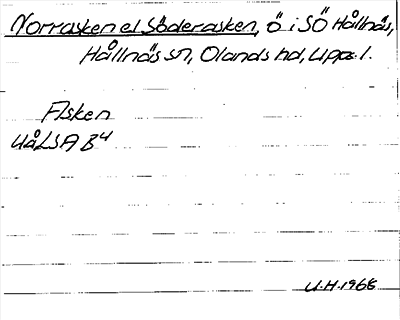 Norrasken el Söderasken, ö i SÖ Hållnäs,
Hållnäs sn, Olands hd, Upps. l.
Asken
UÅLSA B4
U.H. 1966